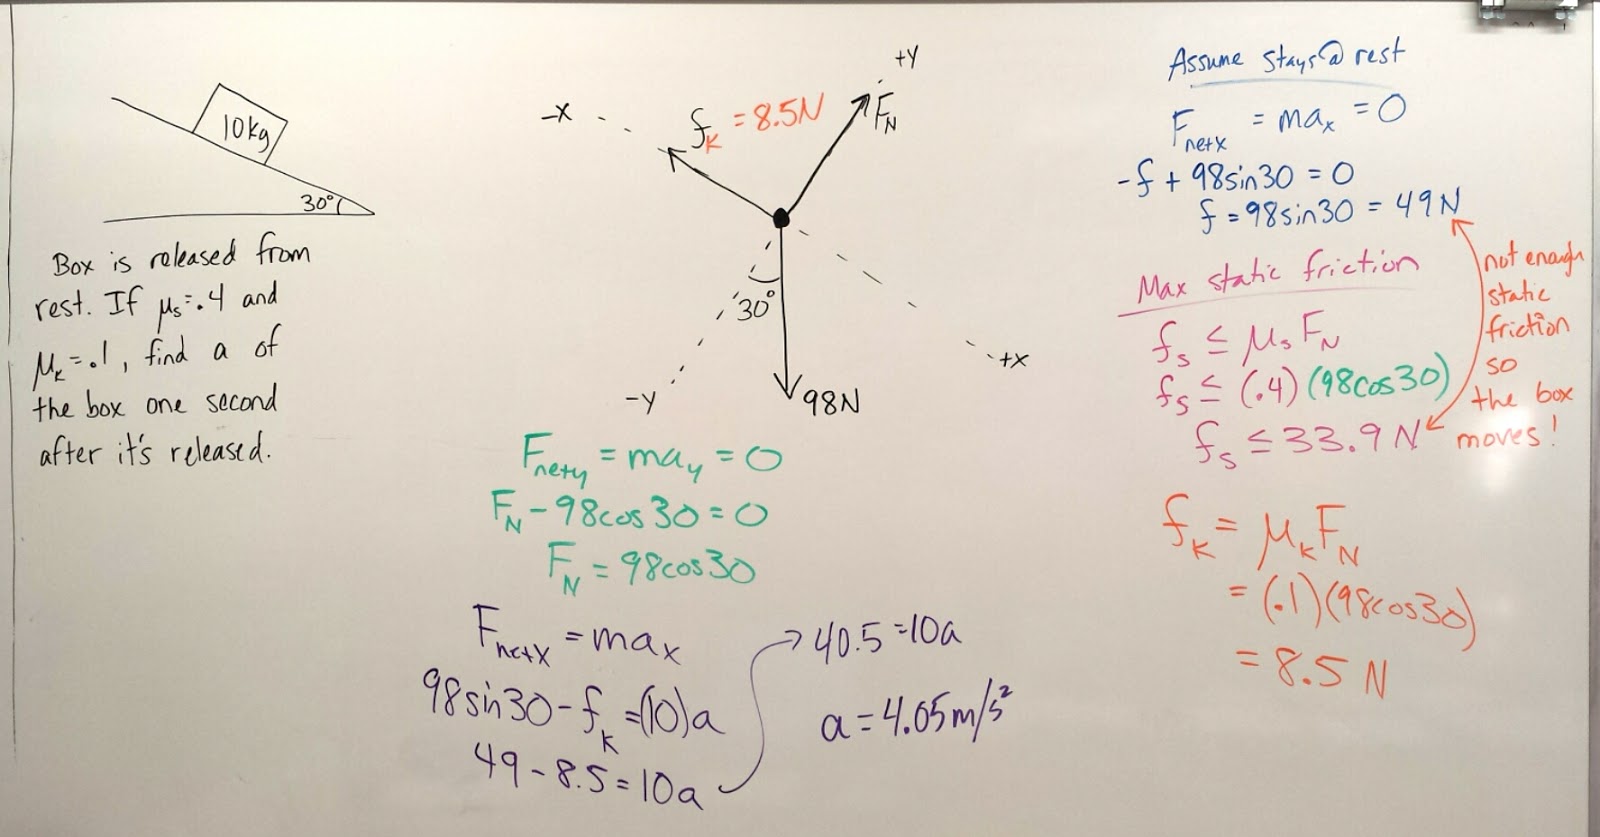 10kg
30°
Box is released from
rest. If μs=.4 and
μK=.1, find a of
the box one second
after it's released.
+Y
-X
fK = 8.5N
FN
30°
+X
-Y
98N
Fnety = may = 0
FN - 98cos30 = 0
FN = 98cos30
FnetX = max
98sin30 - fK = (10)a
49 - 8.5 = 10a
40.5 = 10a
a = 4.05m/s²
Assume stays @ rest
Fnetx = max = 0
-f + 98sin30 = 0
f = 98sin30 = 49N
Max static friction
fs ≤ μs FN
fs ≤ (.4)(98cos30)
fs ≤ 33.9N
not enough
static
friction
so
the box
moves!
fK = μK FN
= (.1)(98cos30)
= 8.5 N